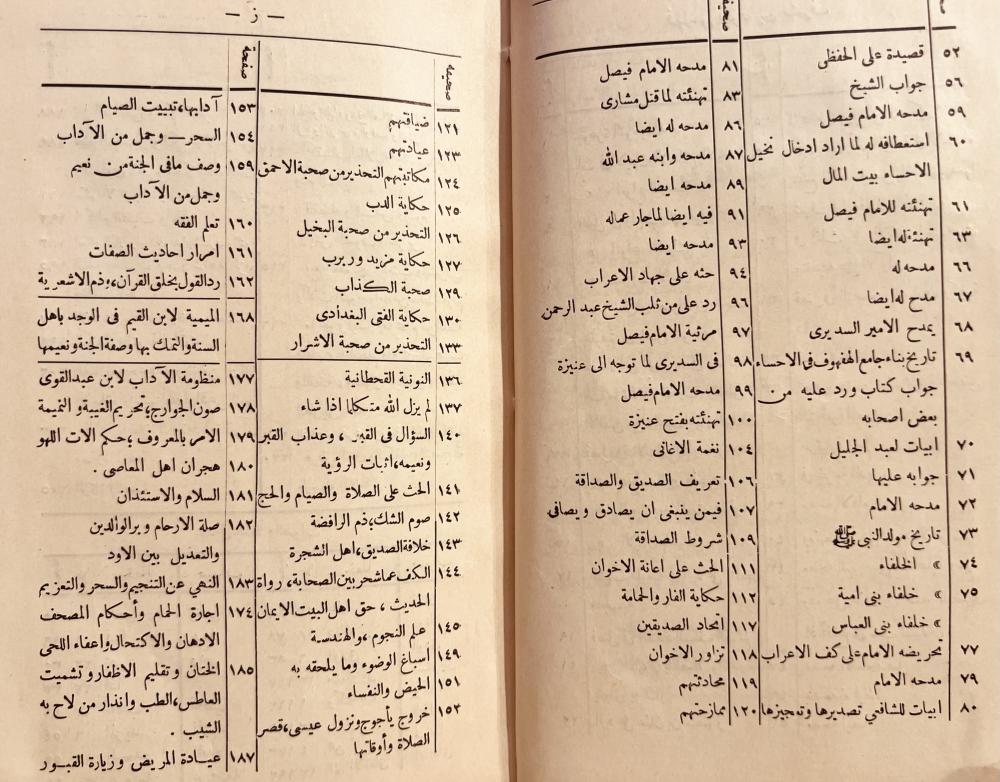 صحيفة
٥٢ قصيدة على الحفظى
٥٦ جواب الشيخ
٥٩ مدحه الامام فيصل
٦٠ استعطافه له لما اراد ادخال نخيل
الاحساء بيت المال
٦١ تهنئته للامام فيصل
٦٣ تهنئة له ايضا
٦٦ مدحه له
٦٧ مدح له ايضا
٦٨ يمدح الامير السديرى
٦٩ تاريخ بناء جامع الهفهوف فى الاحساء
جواب كتاب ورد عليه من
بعض اصحابه
٧٠ ابيات لعبد الجليل
٧١ جوابه عليها
٧٢ مدحه الامام
٧٣ تاريخ مولد النبى ﷺ
٧٤ » الخلفاء
٧٥ » خلفاء بنى امية
» خلفاء بنى العباس
٧٧ تحريضه الامام على كف الاعراب
٧٩ مدحه الامام
٨٠ ابيات للشافعي تصديرها وتعجيزها
صحيفة
٨١ مدحه الامام فيصل
٨٣ تهنئته لما قتل مشارى
٨٦ مدحه له ايضا
٨٧ مدحه وابنه عبد الله
٨٩ مدحه ايضا
٩١ فيه ايضا لما جار عماله
٩٣ مدحه ايضا
٩٤ حثه على جهاد الاعراب
٩٦ رد على من ثلب الشيخ عبد الرحمن
٩٧ مرثية الامام فيصل
٩٨ فى السديرى لما توجه الى عنيزة
٩٩ مدحه الامام فيصل
١٠٠ تهنئته بفتح عنيزة
١٠٤ نغمة الاغانى
١٠٦ تعريف الصديق والصداقة
١٠٧ فيمن ينبغى ان يصادق ويصافى
١٠٩ شروط الصداقة
١١١ الحث على اعانة الاخوان
١١٢ حكاية الفار والحمامة
١١٧ اتحاد الصديقين
١١٨ تزاور الاخوان
١١٩ محادثتهم
١٢٠ ممازحتهم
— ز —
صحيفة
١٢١ ضيافتهم
١٢٣ عيادتهم
١٢٤ مكاتبتهم التحذير من صحبة الاحمق
١٢٥ حكاية الدب
١٢٦ التحذير من صحبة البخيل
١٢٧ حكاية مزيد وريرب
١٢٩ صحبة الكذاب
١٣٠ حكاية الفتى البغدادى
١٣٣ التحذير من صحبة الاشرار
١٣٦ النونية القحطانية
١٣٧ لم يزل الله متكلما اذا شاء
١٤٠ السؤال فى القبر ، وعذاب القبر
ونعيمه، اثبات الرؤية
١٤١ الحث على الصلاة والصيام والحج
١٤٢ صوم الشك، ذم الرافضة
١٤٣ خلافة الصديق، اهل الشجرة
١٤٤ الكف عما شجر بين الصحابة، رواة
الحديث ، حق اهل البيت الايمان
١٤٥ علم النجوم ، والهندسة
١٤٩ اسباغ الوضوء وما يلحقه به
١٥١ الحيض والنفساء
١٥٢ خروج يأجوج ونزول عيسى، قصر
الصلاة وأوقاتها
صفحة
١٥٣ آدابها، تبييت الصيام
١٥٤ السحر — وجمل من الآداب
١٥٩ وصف مافى الجنة من نعيم
وجمل من الآداب
١٦٠ تعلم الفقه
١٦١ امرار احاديث الصفات
١٦٢ رد القول بخلق القرآن، وذم الاشعرية
١٦٨ الميمية لابن القيم فى الوجد باهل
السنة والتمسك بها وصفة الجنة ونعيمها
١٧٧ منظومة الآداب لابن عبد القوى
١٧٨ صون الجوارح، تحريم الغيبة والنميمة
١٧٩ الامر بالمعروف، حكم الات اللهو
١٨٠ هجران اهل المعاصى .
١٨١ السلام والاستئذان
١٨٢ صلة الارحام وبر الوالدين
والتعديل بين الاود
١٨٣ النهي عن التنجيم والسحر والتعزيم
١٧٤ اجارة الحمام وأحكام المصحف
الادهان والاكتحال واعفاء اللحى
١٨٥ الختان وتقليم الاظفار وتشميت
العاطس، الطب وانذار من لاح به
الشيب .
١٨٧ عيادة المريض وزيارة القبور